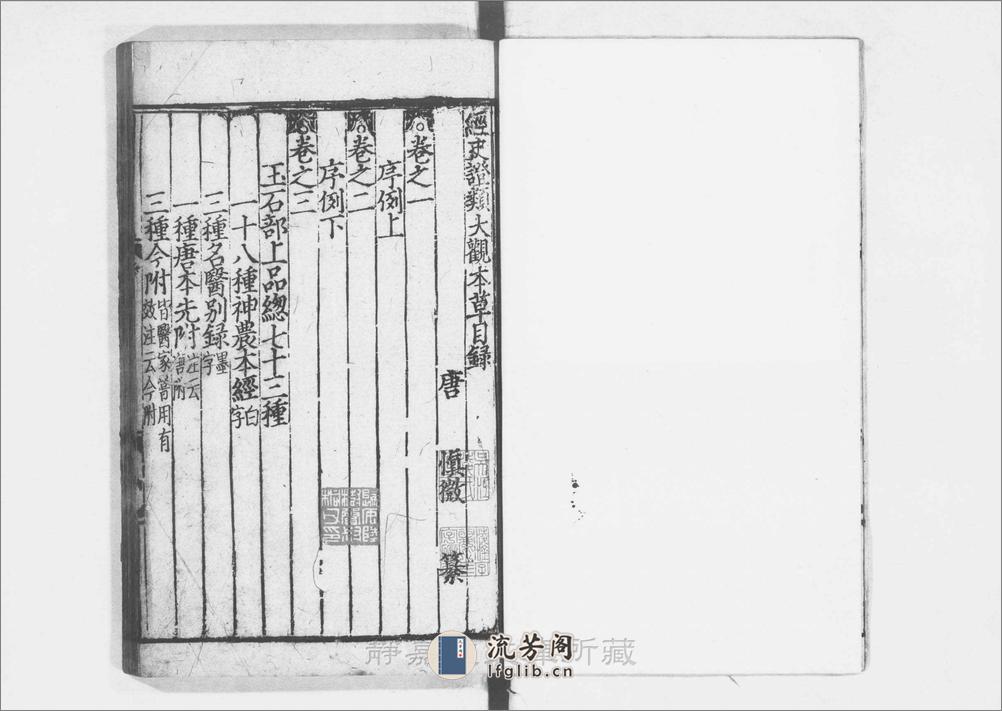 經史證類大觀本草目録
唐 慎微 纂
卷之一
序例上
卷之二
序例下
卷之三
玉石部上品總七十三種
一十八種神農本經白字
三種名醫別録墨字
一種唐本先附注云唐附
三種今附皆醫家嘗用有效注云今附
流芳阁
lfglib.cn
所藏